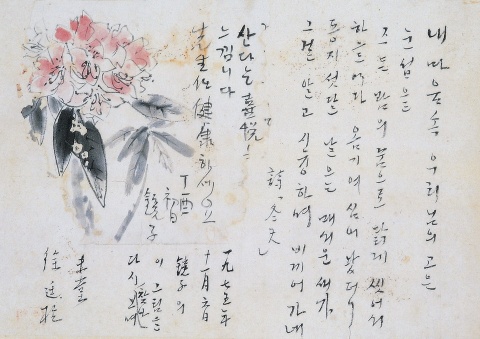 내 마음 속 우리 님의 고은
눈섭을
즈믄 밤의 꿈으로 맑게 씻어서
하늘에다 옴기여 심어 놨더니
동지섯달 날으는 매서운 새가
그걸 알고 시늉하며 비끼어 가네
詩「冬天」
「산다는 喜悅」을
느낍니다
先生任 健康하세요
丁酉
春日
鏡子
一九七五年
十一月六日
鏡子의
이 그림을
다시 보며
未堂
徐廷柱